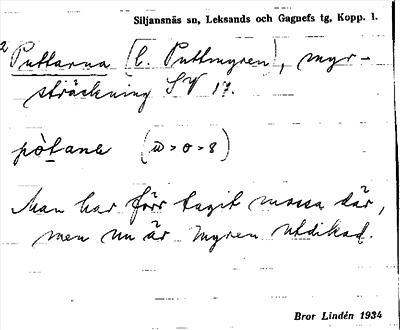 Siljansnäs sn, Leksands och Gagnefs tg, Kopp. l.
2 Puttarna [l. Puttmyren], myr-
sträckning SV 17.
pòtana (ω > o > 8)
Man har förr tagit mossa där,
men nu är myren utdikad.
Bror Lindén 1934